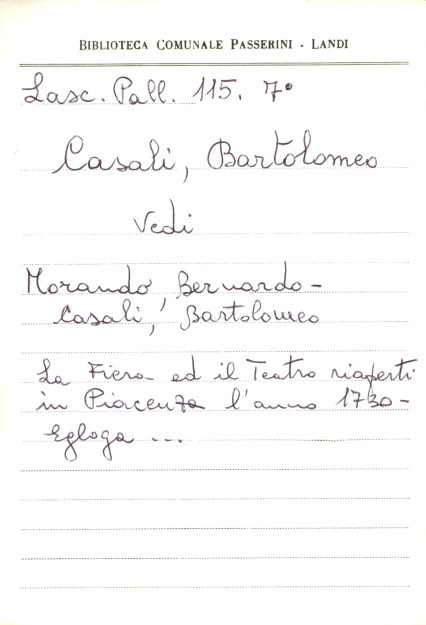 BIBLIOTECA COMUNALE PASSERINI - LANDI
Lasc. Pall. 115. 7°
Casali, Bartolomeo
Vedi
Morando, Bernardo -
Casali, Bartolomeo
La Fiera ed il Teatro riaperti
in Piacenza l'anno 1730 -
Egloga ...